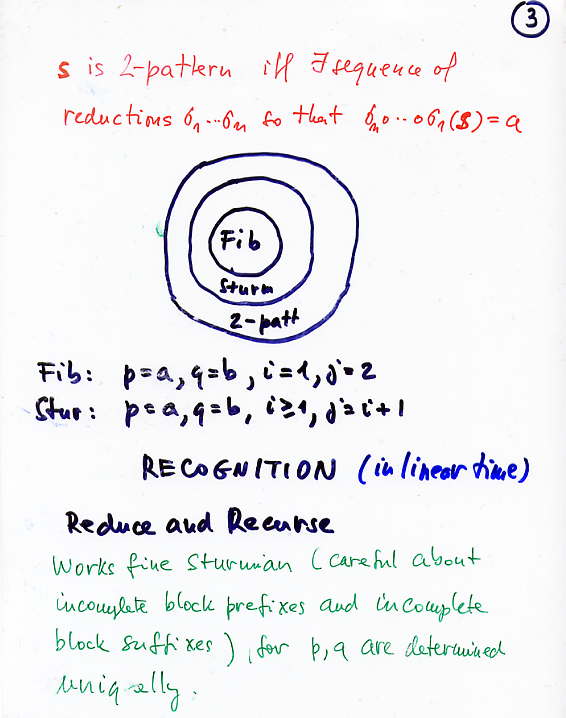 3
s is 2-pattern iff ∃ sequence of
reductions σ₁...σₙ so that σₙ∘..∘σ₁(s) = a
Fib
Sturm
2-patt
Fib: p=a, q=b, i=1, j=2
Stur: p=a, q=b, i≥1, j=i+1
RECOGNITION (in linear time)
Reduce and Recurse
Works fine Sturmian (careful about
incomplete block prefixes and incomplete
block suffixes), for p,q are determined
uniqelly.